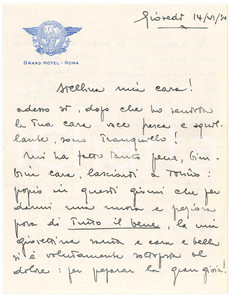 Giovedì 14/VI/34
GRAND HOTEL - ROMA
Stellina mia cara!
adesso sì, dopo che ho sentito
la tua cara voce fresca e squil-
lante, sono tranquillo!
Mi ha fatto tanta pena, bim-
bina cara, lasciarti a Torino:
proprio in questi giorni che per
darmi una nuova e
prova di tutto il bene, la mia
e cara e bella
si è volutamente sottoposta al
dolore: per preparar la gran gioia!